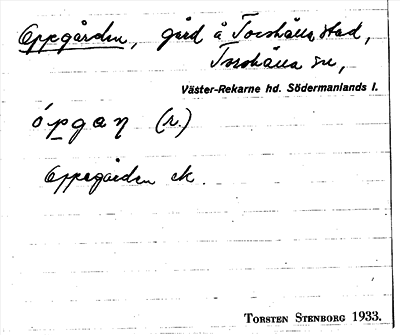 Oppgården, gård å Torshälla stad,
Torshälla sn,
Väster-Rekarne hd. Södermanlands l.
ópgaŋ (r.)
Oppegården ek.
TORSTEN STENBORG 1933.